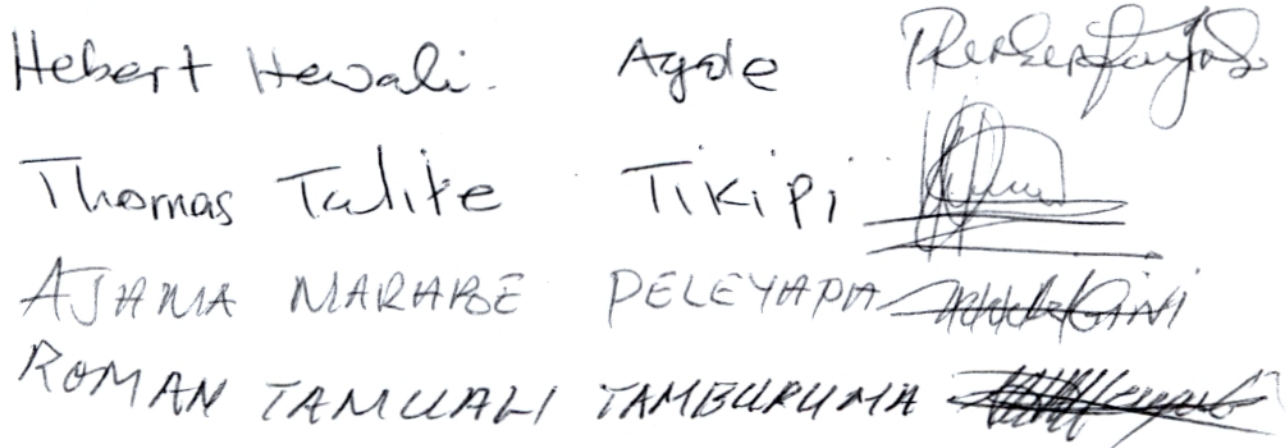 Hebert Hewali. Agole
Thomas Talite Tikipi
AJAMA MARABE PELEYAPA
ROMAN TAMUALI TAMBURUMA